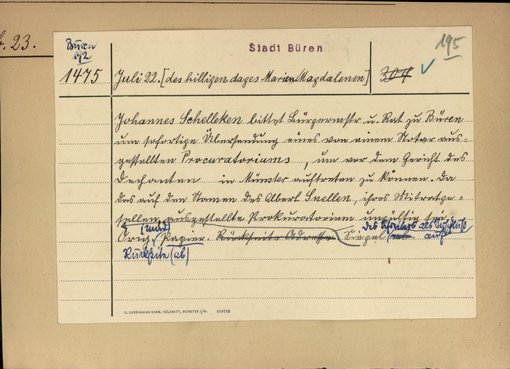 23.
Büren
Stadt Büren
195
1475
Juli 22. [des hilligen dages Marien Magdalenen]
304
Johannes Schelleken bittet Bürgermstr u. Rat zu Büren
um sofortige Übersendung eines von einem Notar aus-
gestellten Procuratoriums, um vor dem Gericht des
Dechanten in Münster auftreten zu können. Da
das auf den Namen des Albert Snellen, ihres Mitratge-
sellen ausgestellte Prokuratorium ungültig sei.
(rund) des als
Orig. Papier. Rückseite Adresse. Siegel auf
Rückseite (ab)